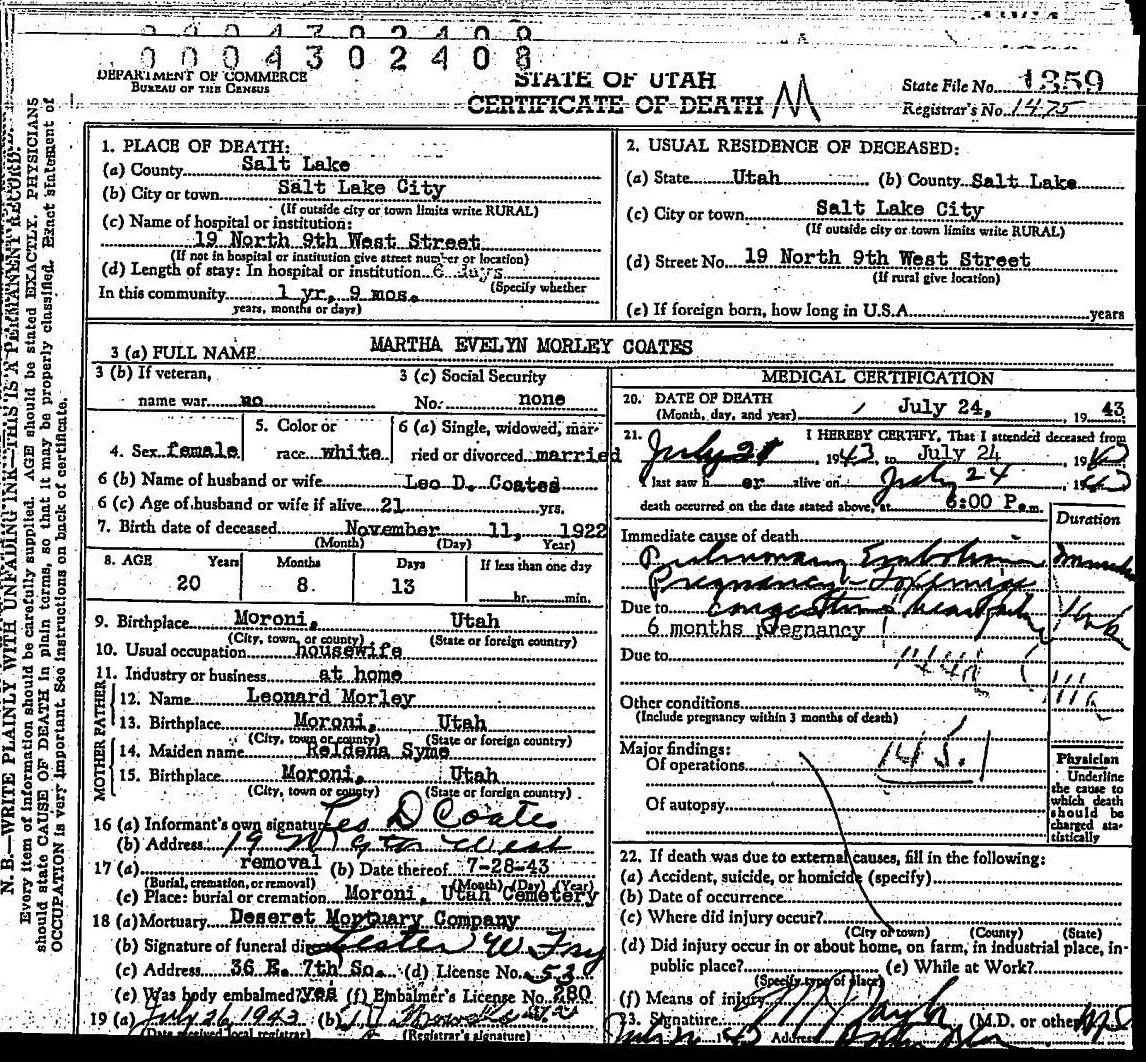 0004302408
0004302408
DEPARTMENT OF COMMERCE
BUREAU OF THE CENSUS
STATE OF UTAH
CERTIFICATE OF DEATH M
State File No. 1359
Registrar's No. 1475
N. B.—WRITE PLAINLY WITH UNFADING INK—THIS IS A PERMANENT RECORD.
Every item of information should be carefully supplied. AGE should be stated EXACTLY. PHYSICIANS
should state CAUSE OF DEATH in plain terms, so that it may be properly classified. Exact statement of
OCCUPATION is very important. See instructions on back of certificate.
1. PLACE OF DEATH:
(a) County Salt Lake
(b) City or town Salt Lake City
(If outside city or town limits write RURAL)
(c) Name of hospital or institution:
19 North 9th West Street
(If not in hospital or institution give street number or location)
(d) Length of stay: In hospital or institution 6 days
(Specify whether
In this community 1 yr, 9 mos.
years, months or days)
2. USUAL RESIDENCE OF DECEASED:
(a) State Utah (b) County Salt Lake
(c) City or town Salt Lake City
(If outside city or town limits write RURAL)
(d) Street No. 19 North 9th West Street
(If rural give location)
(e) If foreign born, how long in U.S.A. years
3 (a) FULL NAME MARTHA EVELYN MORLEY COATES
3 (b) If veteran,
name war no
3 (c) Social Security
No. none
4. Sex female
5. Color or
race white
6 (a) Single, widowed, mar-
ried or divorced married
6 (b) Name of husband or wife Leo D. Coates
6 (c) Age of husband or wife if alive 21 yrs.
7. Birth date of deceased November 11, 1922
(Month) (Day) Year)
8. AGE Years Months Days If less than one day
20 8 13 hr. min.
9. Birthplace Moroni, Utah
(City, town, or county) (State or foreign country)
10. Usual occupation housewife
11. Industry or business at home
FATHER
12. Name Leonard Morley
13. Birthplace Moroni, Utah
(City, town or county) (State or foreign country)
MOTHER
14. Maiden name Reldena Syme
15. Birthplace Moroni, Utah
(City, town or county) (State or foreign country)
16 (a) Informant's own signature Leo D Coates
(b) Address 19 N 9th West
17 (a) removal (b) Date thereof 7-28-43
(Burial, cremation, or removal) (Month) (Day) (Year)
(c) Place: burial or cremation Moroni, Utah Cemetery
18 (a) Mortuary Deseret Mortuary Company
(b) Signature of funeral dir Lester W Fry
(c) Address 36 E. 7th So. (d) License No. 530
(e) Was body embalmed? yes (f) Embalmer's License No. 280
19 (a) July 26 1943 (b)
(Date received local registrar) (Registrar's signature)
MEDICAL CERTIFICATION
20. DATE OF DEATH
(Month, day, and year) July 24, 19 43
21. I HEREBY CERTIFY, That I attended deceased from
July 21 1943, to July 24 1943
last saw her alive on July 24 1943
death occurred on the date stated above, at 6:00 P.m.
Immediate cause of death Duration
Pulmonary Embolism
Pregnancy Toxemia
Due to congestive heart 1 wk
6 months pregnancy
Due to
Other conditions
(Include pregnancy within 3 months of death)
Major findings:
Of operations 145.1
Of autopsy
Physician
Underline
the cause to
which death
should be
charged sta-
tistically
22. If death was due to external causes, fill in the following:
(a) Accident, suicide, or homicide (specify)
(b) Date of occurrence
(c) Where did injury occur?
(City or town) (County) (State)
(d) Did injury occur in or about home, on farm, in industrial place, in
public place? (e) While at Work?
(Specify type of place)
(f) Means of injury
23. Signature Taylor (M.D. or other)
1943 Address